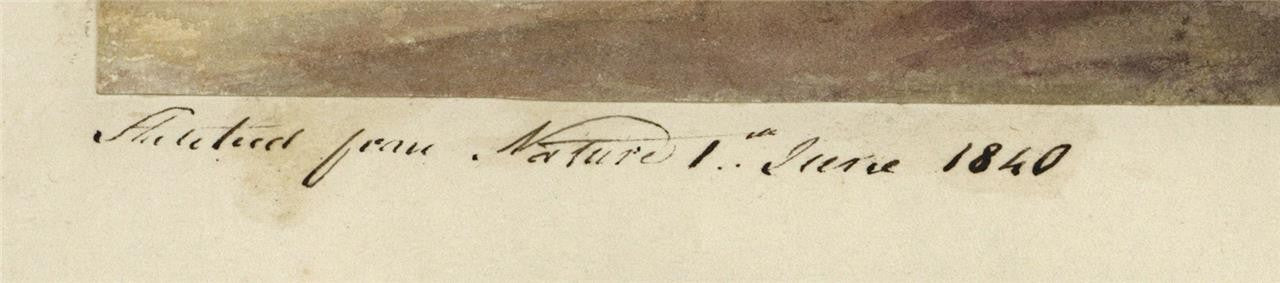 Sketched from Nature 1th June 1840